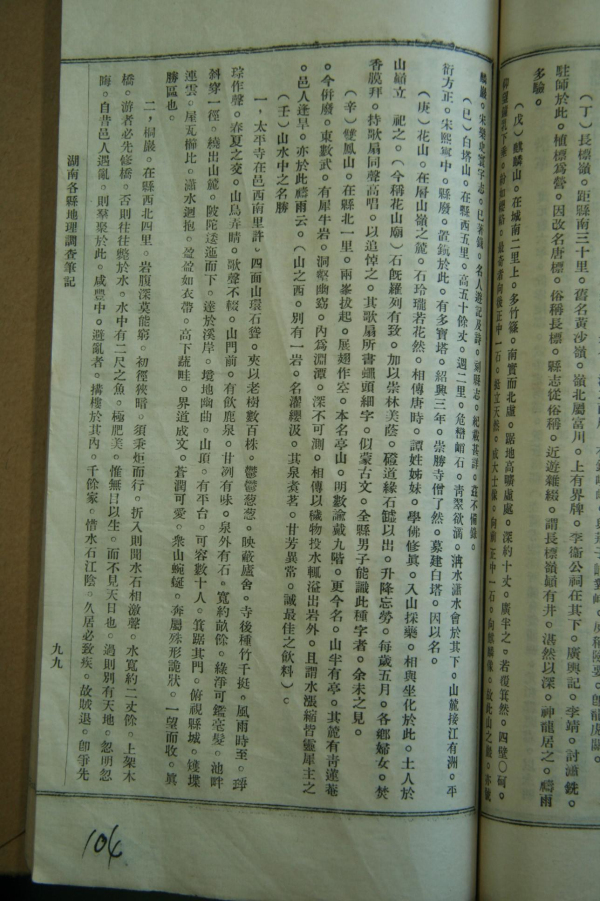 （丁）長標嶺。距縣南三十里。舊名黃沙嶺。嶺北屬富川。上有界牌。李衞公祠在其下。廣輿記。李靖。討蕭銑。
駐師於此。植標為營。因改名唐標。俗稱長標。縣志從俗稱。近遊雜綴。謂長標嶺嶺有井。湛然以深。神龍居之。禱雨
多驗。
（戊）麒麟山。在城南二里上。多竹籜。南實而北虛。踞地高曠處。深約十丈。廣半之。若覆箕然。四壁〇砢。
（巳）白塔山。在縣西五里。高五十餘丈。週二里。危巒嵋石。青翠欲滴。㵲水瀟水會於其下。山麓接江有洲。平
衍方正。宋熙寧中。縣廢。置鎮於此。有多寶塔。紹興三年。崇勝寺僧了然。募建白塔。因以名。
（庚）花山。在層山嶺之麓。石玲瓏若花然。相傳唐時。譚姓姊妹。學佛修眞。入山採藥。相與坐化於此。土人於
山巓立　祀之。（今稱花山廟）石旣羅列有致。加以崇林美蔭。磴道緣石罅以出。升降忘勞。每歲五月。各鄕婦女。焚
香膜拜。持歌扇同聲高唱。以追悼之。其歌扇所書蠅頭細字。似蒙古文。全縣男子能識此種字者。余未之見。
（辛）雙鳳山。在縣北一里。兩峯拔起。展翅作空。本名亭山。明數諭戴九階。更今名。山半有亭。其麓有青蓮菴
。今倂廢。東數武。有犀牛岩。洞壑幽窈。內為淵潭。深不可測。相傳以穢物投水輒溢出岩外。且謂水漲縮皆靈犀主之
。邑人逢旱。亦於此禱雨云。（山之西。別有一岩。名濯纓汲。其泉煮茗。甘芳異常。誠最佳之飲料）。
（壬）山水中之名勝
一，太平寺在邑西南里許）四面山環石聳。夾以老樹數百株。鬱鬱葱葱。映蔽廬舍。寺後種竹千挺。風雨時至。琤
琮作聲。春夏之交。山鳥弄晴。歌聲不輟。山門前。有飲鹿泉。甘冽有味。泉外有石。寬約畝餘。綠淨可鑑毫髮。池畔
斜穿一徑。橈出山麓。陂陀逶迤而下。達於溪岸。境地幽曲。山頂。有平台。可容數十人。箕踞其門。俯視縣城。雉堞
連雲。屋瓦櫛比。瀟水迴抱。盈盈如衣帶。高下蔬畦。界道成文。蒼潤可愛。衆山蜿蜒。奔屬殊形詭狀。一望而收。眞
勝區也。
二，桐巖。在縣西北四里。岩腹深莫能窮。初徑狹暗。須秉炬而行。折入則聞水石相激聲。水寬約二丈餘。上架木
橋。游者必先修橋。否則往往蹩於水。水中有二尺之魚。極肥美。惟無日以生。而不見天日也。過則別有天地。忽明忽
晦。自昔邑人遇亂。則羣聚於此。咸豐中。避亂者。搆樓於其內。千餘家。惜水石江陰。久居必致疾。故賊退。卽爭先
湖南各縣地理調查筆記
九九
104